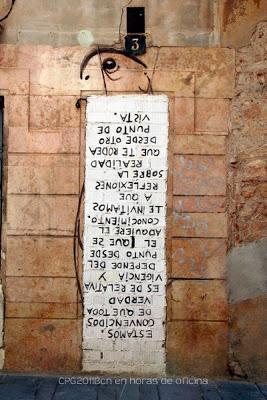 3
ESTAMOS
CONVENCIDOS
DE QUE TODA
VERDAD
ES DE RELATIVA
VIGENCIA Y
DEPENDE DEL
PUNTO DESDE
EL QUE SE
ADQUIERE EL
CONOCIMIENTO.
LE INVITAMOS
A QUE
REFLEXIONES
SOBRE LA
REALIDAD
QUE TE RODEA
DESDE OTRO
PUNTO DE
VISTA.
CPG2011Bcn en horas de oficina